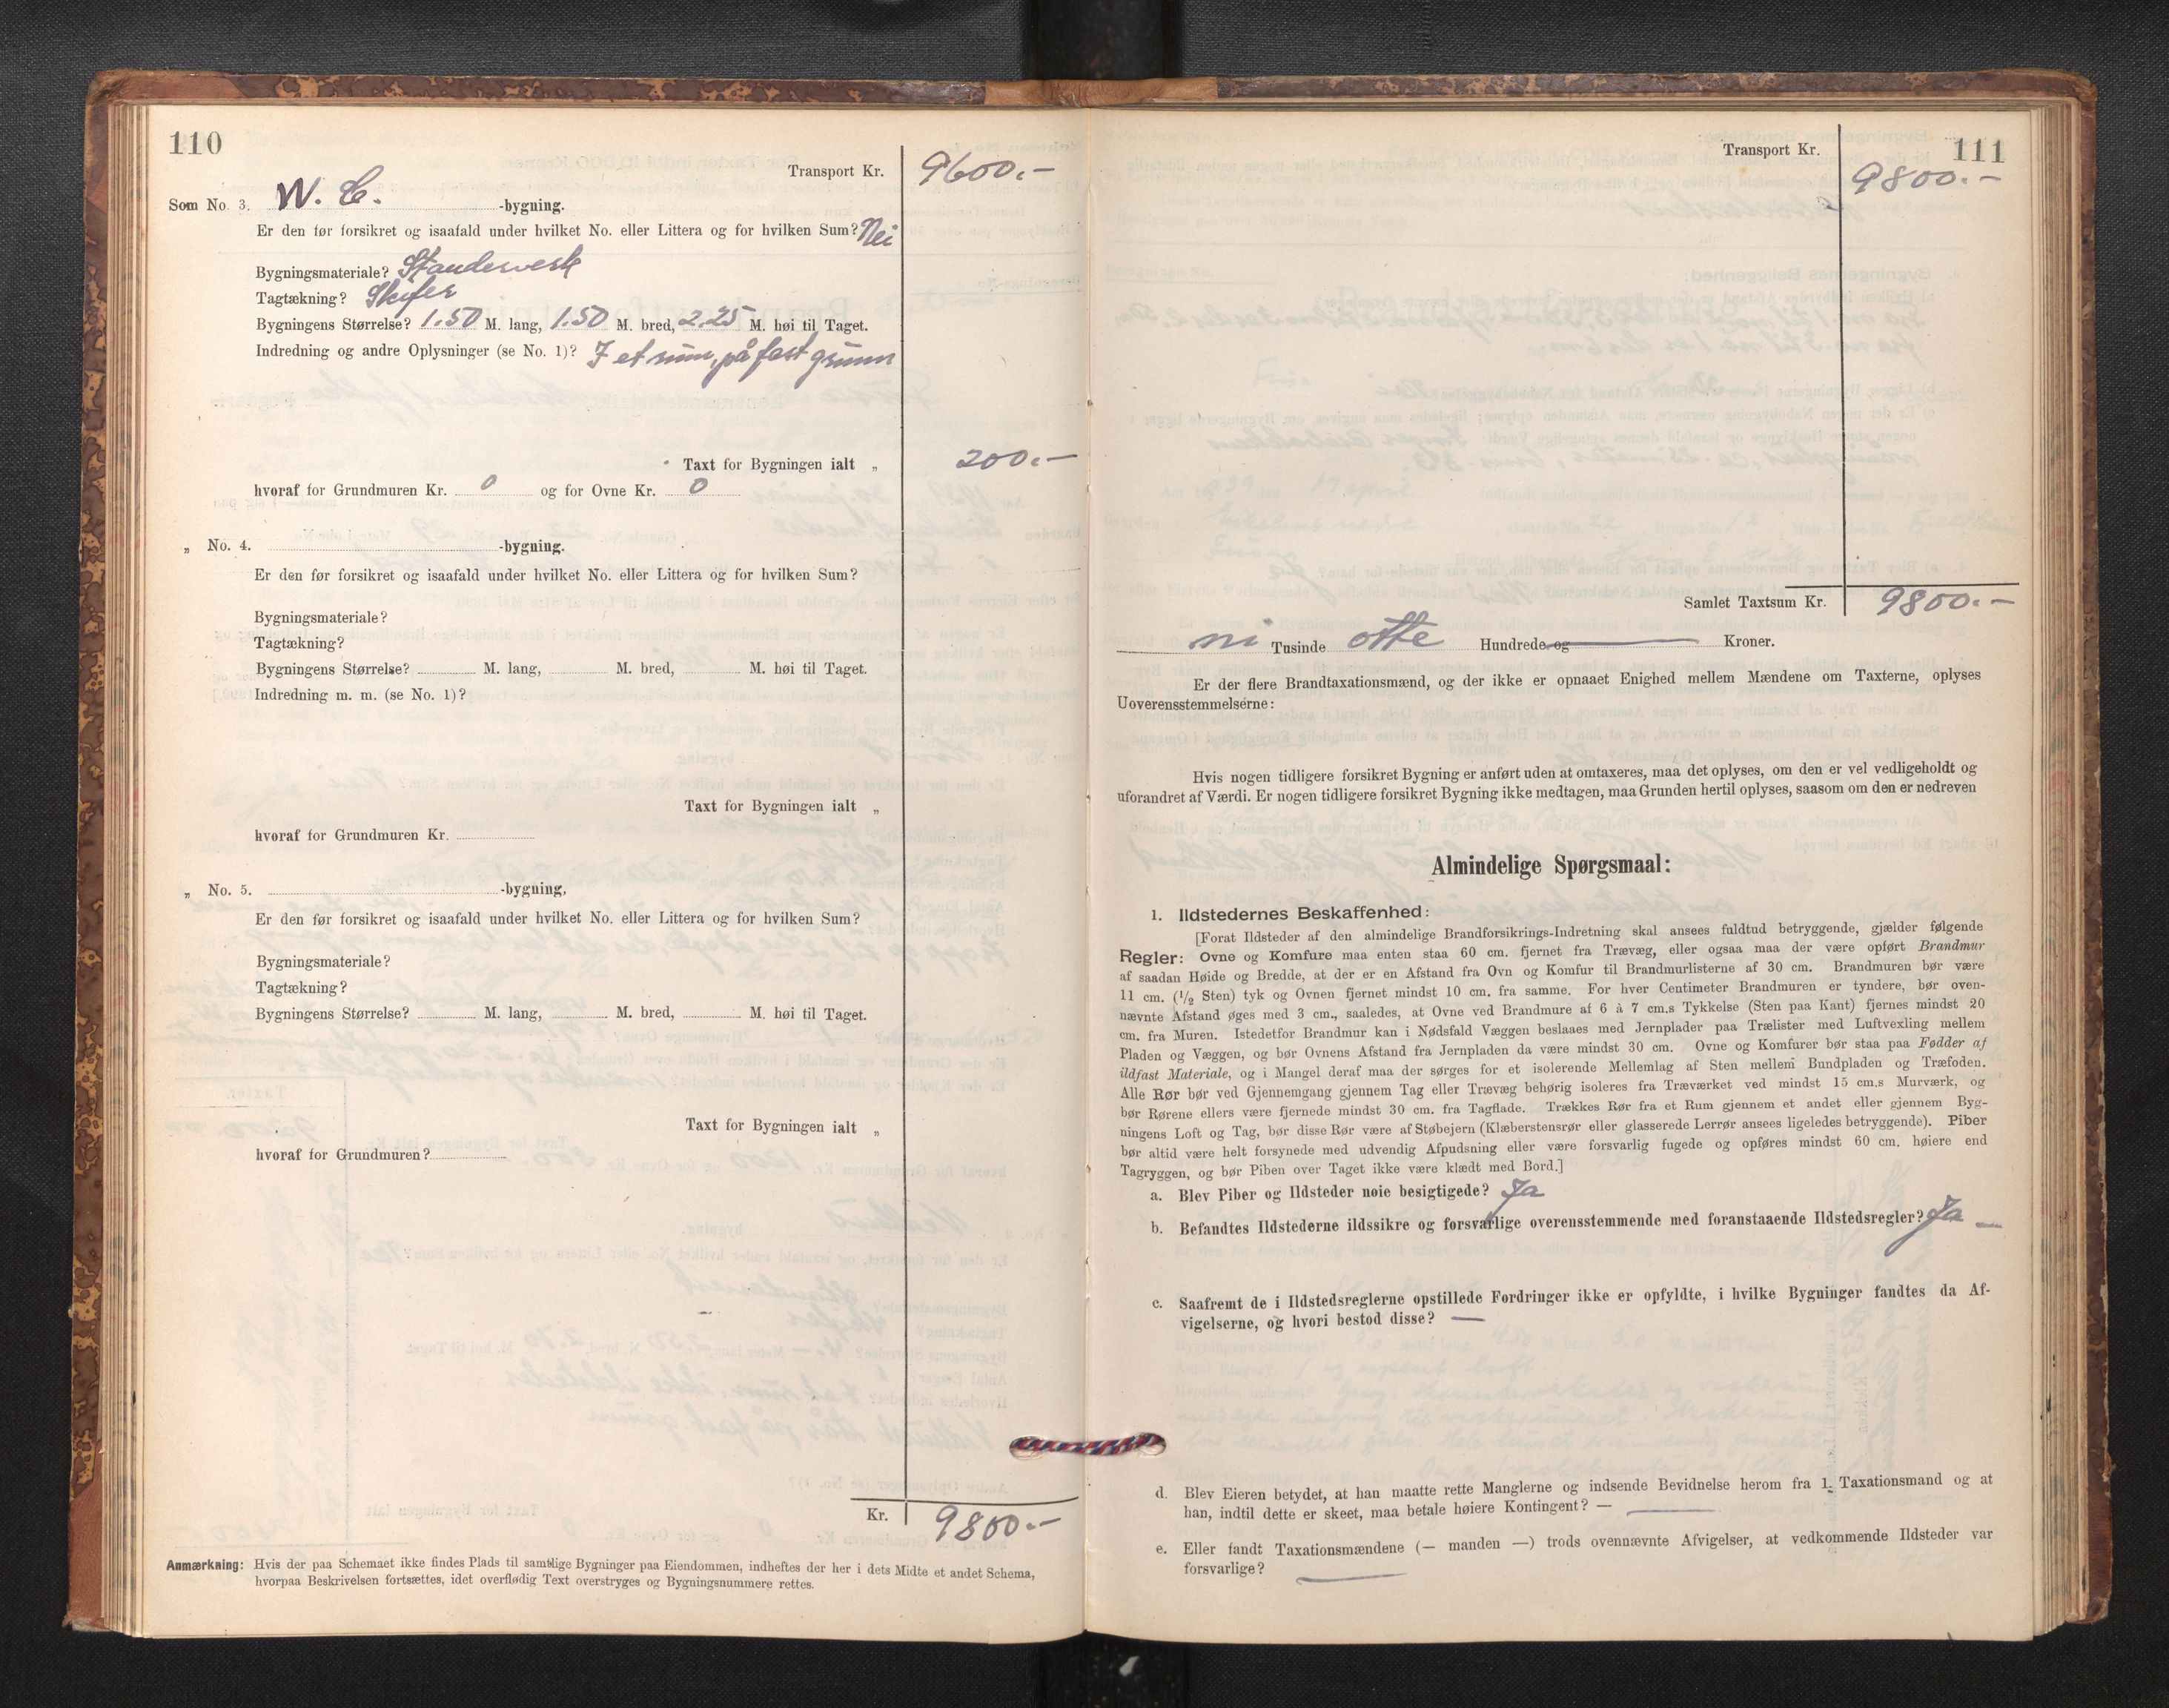 110
Transport Kr. 9600.-
Som No. 3. W. C. -bygning.
Er den før forsikret og isaafald under hvilket No. eller Littera og for hvilken Sum? Nei
Bygningsmateriale? Standerverk
Tagtækning? Skifer
Bygningens Størrelse? 1.50 M. lang, 1.50 M. bred, 2.25 M. høi til Taget.
Indredning og andre Oplysninger (se No. 1)? I et rum, på fast grunn
Taxt for Bygningen ialt „ 200.-
hvoraf for Grundmuren Kr. 0 og for Ovne Kr. 0
„ No. 4. -bygning.
Er den før forsikret og isaafald under hvilket No. eller Littera og for hvilken Sum?
Bygningsmateriale?
Tagtækning?
Bygningens Størrelse? M. lang, M. bred, M. høi til Taget.
Indredning m. m. (se No. 1)?
Taxt for Bygningen ialt „
hvoraf for Grundmuren Kr.
„ No. 5. -bygning,
Er den før forsikret og isaafald under hvilket No. eller Littera og for hvilken Sum?
Bygningsmateriale?
Tagtækning?
Bygningens Størrelse? M. lang, M. bred, M. høi til Taget.
Taxt for Bygningen ialt „
hvoraf for Grundmuren?
Kr. 9800.-
Anmærkning: Hvis der paa Schemaet ikke findes Plads til samtlige Bygninger paa Eiendommen, indheftes der her i dets Midte et andet Schema,
hvorpaa Beskrivelsen fortsættes, idet overflødig Text overstryges og Bygningsnummere rettes.
111
Transport Kr. 9800.-
Samlet Taxtsum Kr. 9800.-
ni Tusinde otte Hundrede og Kroner.
Er der flere Brandtaxationsmænd, og der ikke er opnaaet Enighed mellem Mændene om Taxterne, oplyses
Uoverensstemmelserne:
Hvis nogen tidligere forsikret Bygning er anført uden at omtaxeres, maa det oplyses, om den er vel vedligeholdt og
uforandret af Værdi. Er nogen tidligere forsikret Bygning ikke medtagen, maa Grunden hertil oplyses, saasom om den er nedreven
Almindelige Spørgsmaal:
1. Ildstedernes Beskaffenhed:
[Forat Ildsteder af den almindelige Brandforsikrings-Indretning skal ansees fuldtud betryggende, gjælder følgende
Regler: Ovne og Komfure maa enten staa 60 cm. fjernet fra Trævæg, eller ogsaa maa der være opført Brandmur
af saadan Høide og Bredde, at der er en Afstand fra Ovn og Komfur til Brandmurlisterne af 30 cm. Brandmuren bør være
11 cm. (1/2 Sten) tyk og Ovnen fjernet mindst 10 cm. fra samme. For hver Centimeter Brandmuren er tyndere, bør oven-
nævnte Afstand øges med 3 cm., saaledes, at Ovne ved Brandmure af 6 à 7 cm.s Tykkelse (Sten paa Kant) fjernes mindst 20
cm. fra Muren. Istedetfor Brandmur kan i Nødsfald Væggen beslaaes med Jernplader paa Trælister med Luftvexling mellem
Pladen og Væggen, og bør Ovnens Afstand fra Jernpladen da være mindst 30 cm. Ovne og Komfurer bør staa paa Fødder af
ildfast Materiale, og i Mangel deraf maa der sørges for et isolerende Mellemlag af Sten mellem Bundpladen og Træfoden.
Alle Rør bør ved Gjennemgang gjennem Tag eller Trævæg behørig isoleres fra Træværket ved mindst 15 cm.s Murværk, og
bør Rørene ellers være fjernede mindst 30 cm. fra Tagflade. Trækkes Rør fra et Rum gjennem et andet eller gjennem Byg-
ningens Loft og Tag, bør disse Rør være af Støbejern (Klæberstensrør eller glasserede Lerrør ansees ligeledes betryggende). Piber
bør altid være helt forsynede med udvendig Afpudsning eller være forsvarlig fugede og opføres mindst 60 cm. høiere end
Tagryggen, og bør Piben over Taget ikke være klædt med Bord.]
a. Blev Piber og Ildsteder nøie besigtigede? Ja
b. Befandtes Ildstederne ildssikre og forsvarlige overensstemmende med foranstaaende Ildstedsregler? Ja —
c. Saafremt de i Ildstedsreglerne opstillede Fordringer ikke er opfyldte, i hvilke Bygninger fandtes da Af-
vigelserne, og hvori bestod disse? —
d. Blev Eieren betydet, at han maatte rette Manglerne og indsende Bevidnelse herom fra 1. Taxationsmand og at
han, indtil dette er skeet, maa betale høiere Kontingent? — —
e. Eller fandt Taxationsmændene (— manden —) trods ovennævnte Afvigelser, at vedkommende Ildsteder var
forsvarlige? —